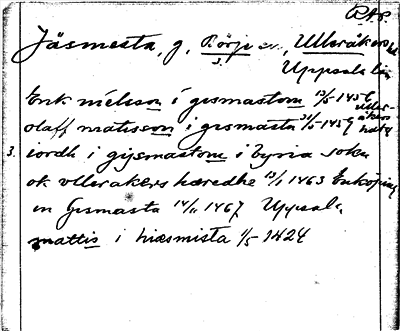 RAP.
Jäsmesta, g, Börje sn, Ulleråkers hd
3.
Uppsala län
Erik nielsson i gismastom 13/5 1456
olaff matisson i gismasta 31/5 1459 Uller-åkers hdrd
3. iordh i gijsmastom i byria sokn
ok vllerakers hæredhe 13/1 1463 Enköping
en Gismasta 14/11 1467 Uppsala
mattis i hiæsmista 1/5 1424